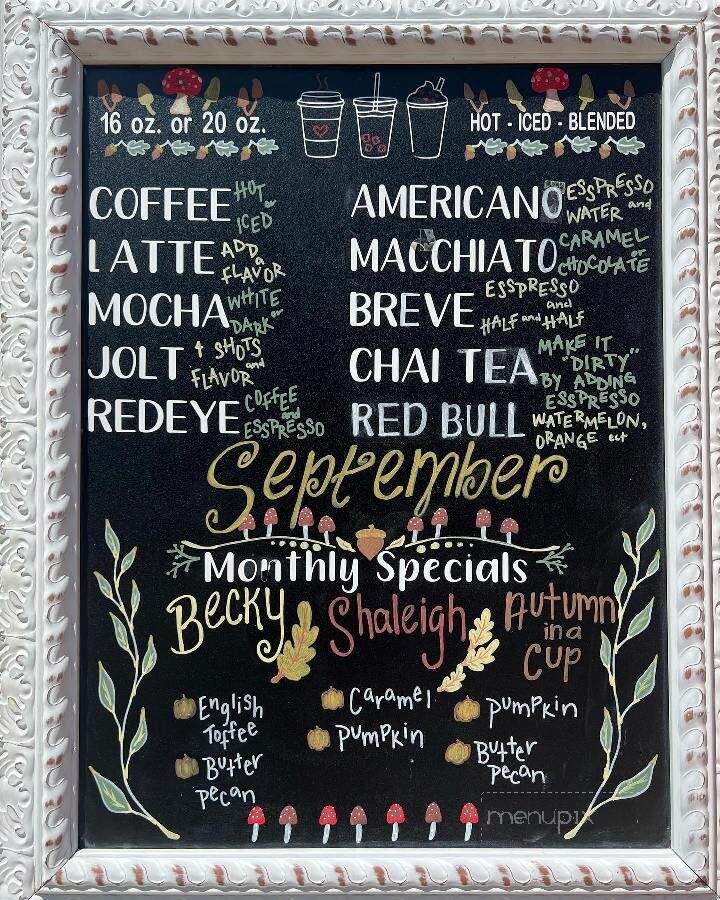 16 oz. or 20 oz.
HOT - ICED - BLENDED
COFFEE HOT or ICED
LATTE ADD a FLAVOR
MOCHA WHITE or DARK
JOLT 4 SHOTS and FLAVOR
REDEYE COFFEE and ESSPRESSO
AMERICANO ESSPRESSO and WATER
MACCHIATO CARAMEL or CHOCOLATE
BREVE ESSPRESSO and HALF and HALF
CHAI TEA MAKE IT "DIRTY" BY ADDING ESSPRESSO
RED BULL WATERMELON, ORANGE ect
September
Monthly Specials
Becky
English
Toffee
Butter
pecan
Shaleigh
Caramel
pumpkin
Autumn
in a
Cup
pumpkin
Butter
pecan
menupix